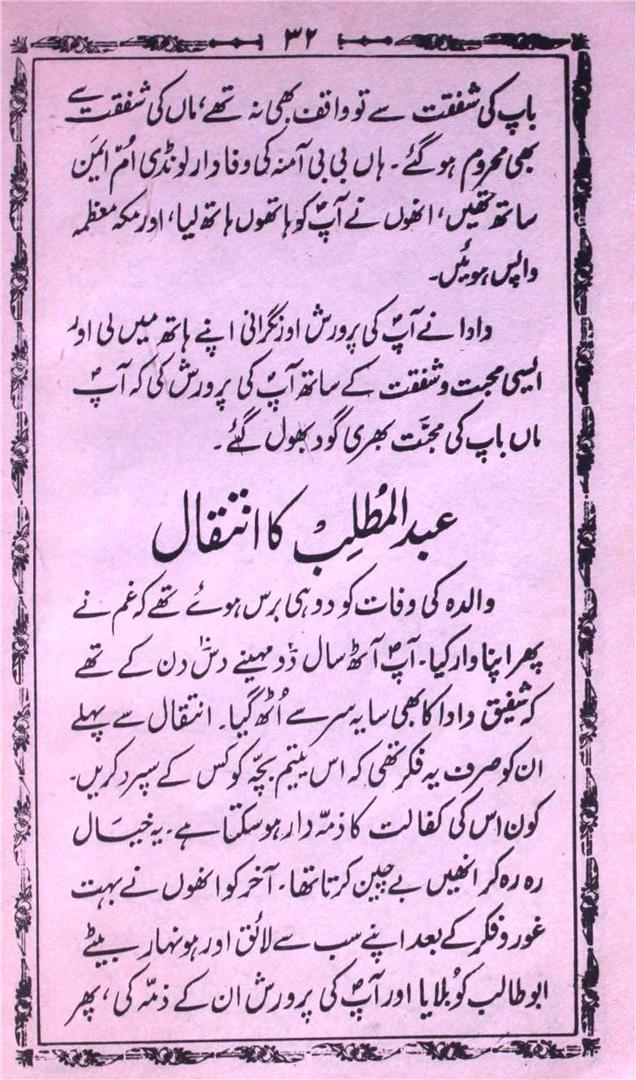 ۳۲
باپ کی شفقت سے تو واقف بھی نہ تھے، ماں کی شفقت سے
بھی محروم ہو گئے۔ ہاں بی بی آمنہ کی وفا دار لونڈی اُمّ ایمَن
ساتھ تھیں، انھوں نے آپؐ کو ہاتھوں ہاتھ لیا، اور مکہ معظمہ
واپس ہوئیں۔
دادا نے آپؐ کی پرورش اور نگرانی اپنے ہاتھ میں لی اور
ایسی محبت و شفقت کے ساتھ آپؐ کی پرورش کی کہ آپؐ
ماں باپ کی محبّت بھری گود بھول گئے۔
عبدالمُطلِبْ کا انتقال
والدہ کی وفات کو دو ہی برس ہوئے تھے کہ غم نے
پھر اپنا وار کیا۔ آپؐ آٹھ سال دو مہینے دس دن کے تھے
کہ شفیق دادا کا بھی سایہ سر سے اُٹھ گیا۔ انتقال سے پہلے
ان کو صرف یہ فکر تھی کہ اس یتیم بچّہ کو کس کے سپرد کریں۔
کون اس کی کفالت کا ذمّہ دار ہو سکتا ہے۔ یہ خیال
رہ رہ کر انھیں بے چین کرتا تھا۔ آخر کو انھوں نے بہت
غور و فکر کے بعد اپنے سب سے لائق اور ہونہار بیٹے
ابو طالب کو بُلایا اور آپؐ کی پرورش ان کے ذمّہ کی، پھر